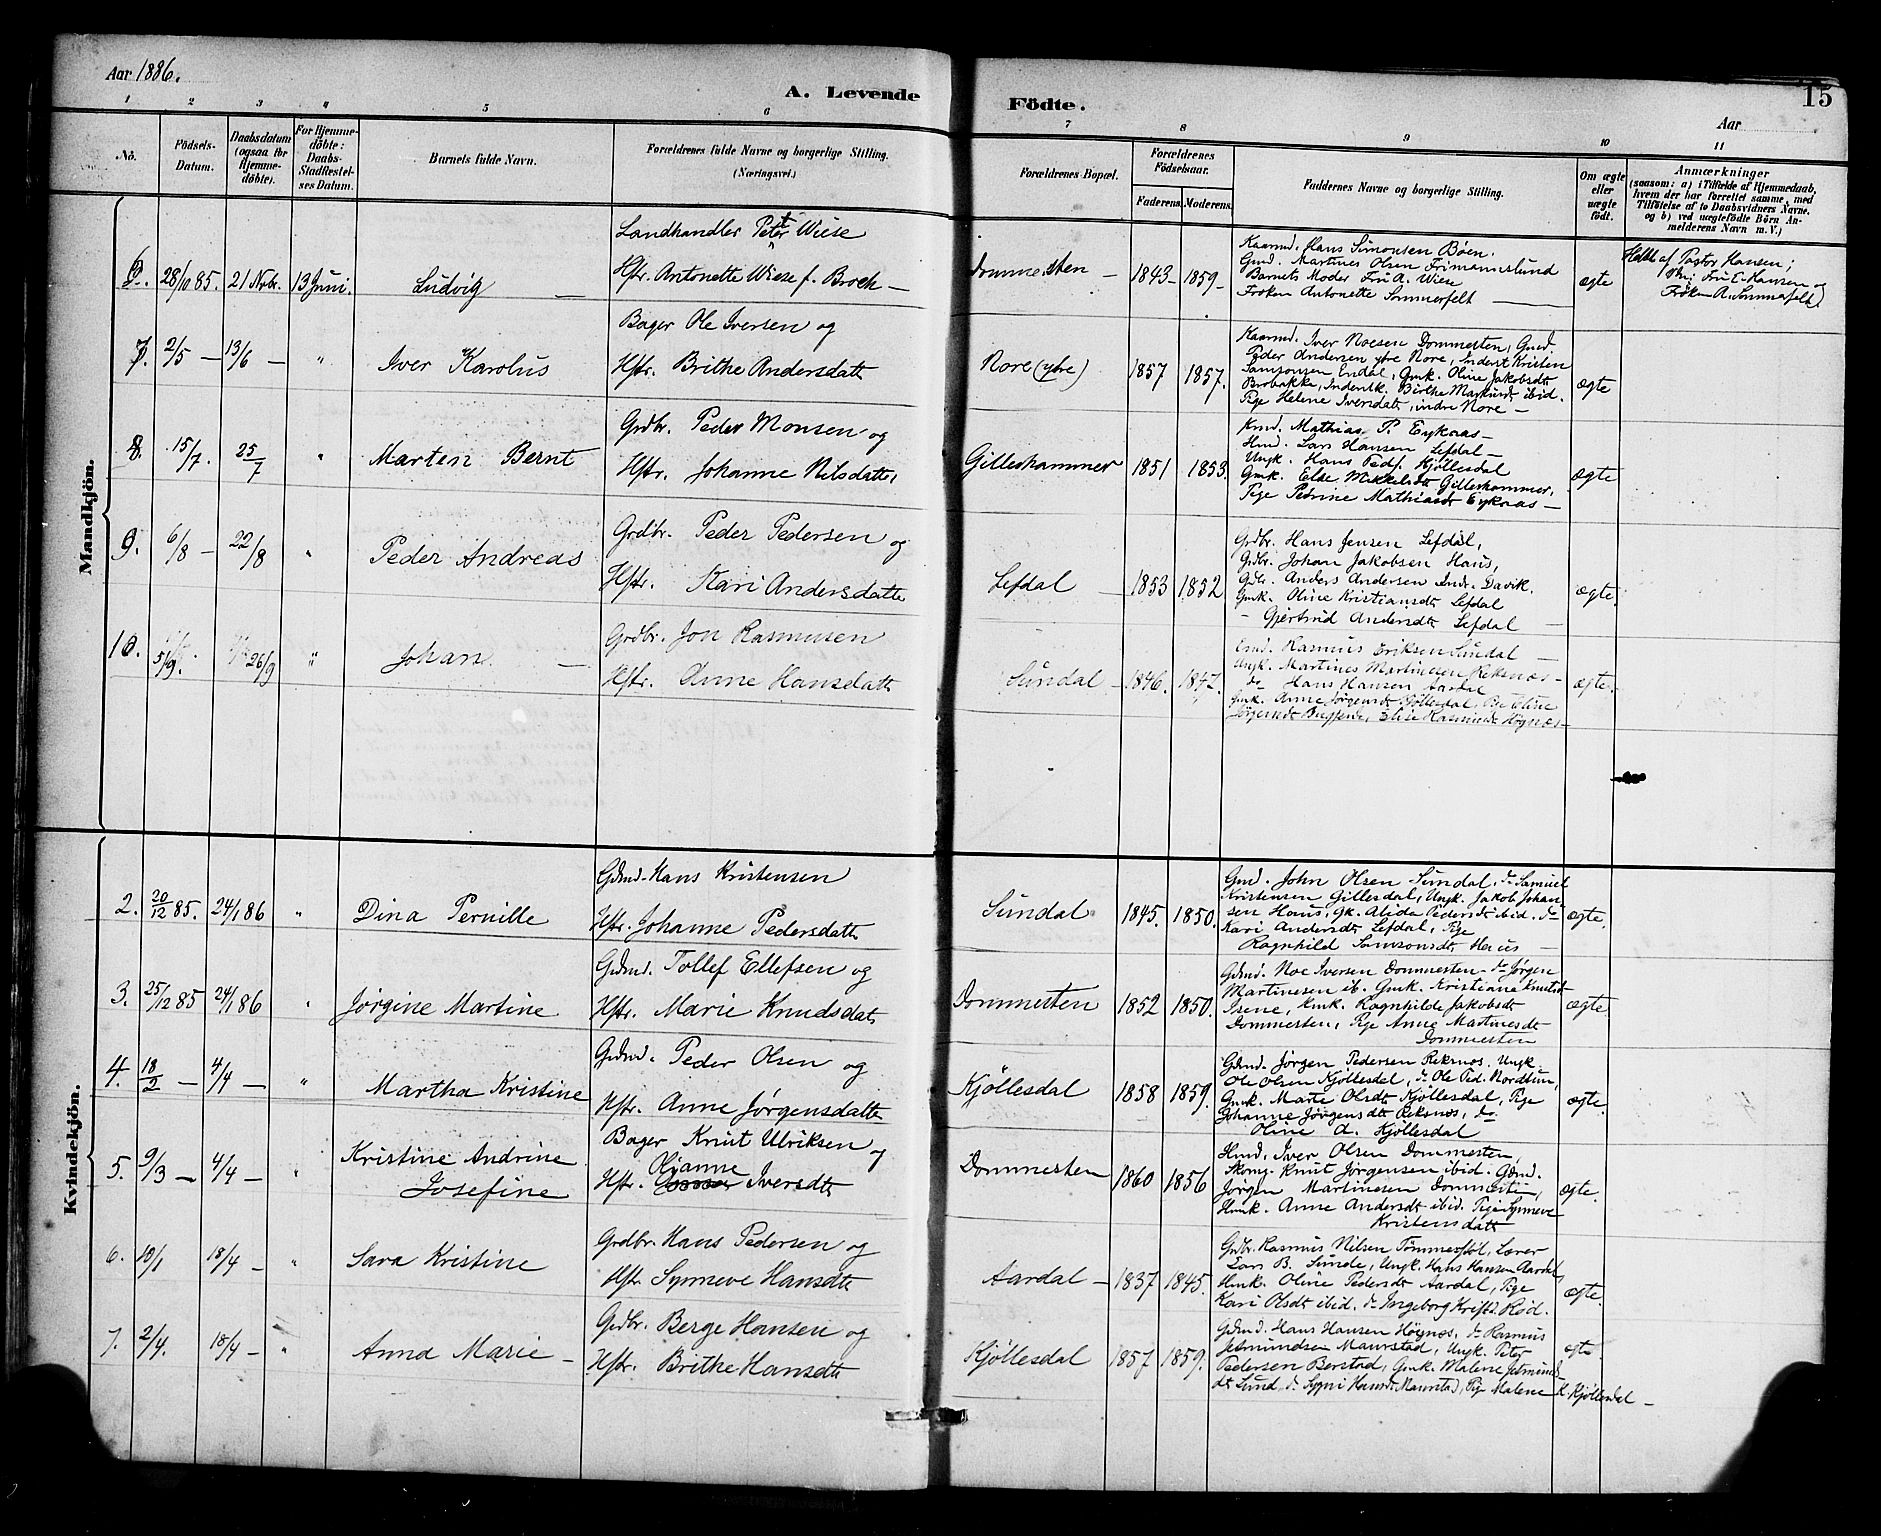 Aar 1886.
A. Levende
Födte.
15
Aar
1 2 3 4 5 6 7 8 9 10 11
No.
Födsels-
Datum.
Daabsdatum
(ogsaa for
Hjemme-
döbte).
For Hjemme-
döbte:
Daabs-
Stadfæstel-
ses Datum.
Barnets fulde Navn.
Forældrenes fulde Navne og borgerlige Stilling.
(Næringsvei.)
Forældrenes Bopæl.
Forældrenes
Födselsaar.
Faderens. Moderens.
Faddernes Navne og borgerlige Stilling.
Om ægte
eller
uægte
födt.
Anmærkninger
(saasom: a) i Tilfælde af Hjemmedaab,
hvem der har forrettet samme, med
Tilföielse af to Daabsvidners Navne.
og b) ved uægtefödte Börn An-
melderens Navn m. V.)
Mandkjön.
6. 28/10 85. 21 Nvbr. 13 Juni. Ludvig —
Landhandler Peter Wiese
Hstr. Antonette Wiese f. Broch —
Dommesten — 1843 — 1859 —
Kaarmd. Hans Simonsen Bøen.
Gmd. Martines Olsen Frimannslund
Barnets Moder Fru A. Wiese
Frøken Antonette Sommerfelt —
ægte
af Pastor Hansen;
Fru E. Hansen og
Frøken A. Sommerfelt)
7. 2/5 — 13/6 — " Iver Karolus
Bager Ole Iversen og
Hstr. Brithe Andersdatt
Nore (ytre) 1857 1857.
Kaarmd. Iver Noesen Dommesten, Gmd
Peder Andersen ytre Nore, Inderst Kristen
Samsonsen Endal, Gmk. Oline Jakobsdt
Brobakke, Inderstk. Birthe Markusdt ibid.
Pige Helene Iversdatt, indre Nore —
ægte
8. 15/7. 25/7 " Marten Bernt
Grdbr. Peder Monsen og
Hstr. Johanne Nilsdatter
Gilleshammer 1851 1853.
Kmd. Mathias P. Eyknas —
Hmd. Lars Hansen Lefdal —
Ungk. Hans Peds. Kjøllesdal
Gmk. Else Mikkelsdt Gilleshammer,
Pige Petrine Mathiasdt Eyknas —
ægte
9. 6/8 — 22/8 " Peder Andreas
Grdbr. Peder Pedersen og
Hstr. Kari Andersdatte
Lefdal — 1853 1852
Grdbr. Hans Jensen Lefdal,
Grdbr. Johan Jakobsen Haus,
Gdbr. Anders Andersen Indr. Davik.
Gmk. Oline Kristiansdt Lefdal
— Gjertrud Andersdt Lefdal —
ægte.
10. 5/9. 26/9 " Johan —
Grdbr. Jon Rasmusen
Hstr. Anne Hansdatte
Sundal — 1846. 1847.
Rasmus Eriksen Sundal —
Ungk. Martines Martinesen Reksnæs —
do Hans Hansen Aardal
Gmk. Anne Jørgensdt Kjøllesdal, Oline
Jørgensdt, Elise Rasmusdt Høgnæs —
ægte.
Kvindekjön.
2. 20/12 85. 24/1 86 " Dina Pernille
Gdmd. Hans Kristensen
Hstr. Johanne Pedersdatte
Sundal 1845. 1850.
Gmd. John Olsen Sundal. do Samuel
Kristensen Gillesdal, Ungk. Jakob Johan-
sen Haus, Gk. Alida Pedersdt ibid. do
Kari Andersdt Lefdal, Pige
Ragnhild Samsonsdt Haus —
ægte.
3. 25/12 85 24/1 86 " Jørgine Martine
Gdmd. Tollef Ellefsen og
Hstr. Marie Knudsdat
Dommesten 1852 1850.
Gdmd. Noe Iversen Dommesten — do Jørgen
Martinesen ib. Gmk. Kristiane Knutsdt
Isene, Hmk. Ragnhilde Jakobsdt
Dommesten, Pige Anne Martinesdt
Dommesten
ægte.
4. 18/2 — 4/4 — " Martha Kristine
Gdmd. Peder Olsen og
Hstr. Anne Jørgensdatte
Kjøllesdal 1858 1859.
Gdmd. Jørgen Pedersen Reksnæs. Ungk.
Ole Olsen Kjøllesdal, do Ole Ped. Nordtun,
Gmk. Marte Olsdt Kjøllesdal, Pige
Johanne Jørgensdt Reksnæs, do
Oline A. Kjøllesdal
ægte.
5. 9/3 — 4/4 — " Kristine Andrine
Josefine
Bager Knut Ulriksen og
Hstr. Oljanne Iversdt
Dommesten 1860 1856
Hmd. Iver Olsen Dommesten,
Skomg. Knut Jørgensen ibid. Gdmd.
Jørgen Martinesen Dommesten,
Hmk. Anne Andersdt ibid. Pige Synneve
Kristensdatt
ægte.
6. 10/1 18/4 — " Sara Kristine
Grdbr. Hans Pedersen og
Hstr Synneve Hansdt
Aardal — 1837 1845.
Grdbr. Rasmus Nilsen Tømmerstøl, Lærer
Lars B. Sunde, Ungk. Hans Hansen Aardal,
Hmk. Oline Pedersdt Aardal, Pige
Kari Olsdt ibid. do Ingeborg Kristd. Rød.
ægte.
7. 2/4. 18/4 — " Anna Marie —
Grdbr. Berge Hansen og
Hstr. Brithe Hansdt
Kjøllesdal 1857 1859.
Gdmd. Hans Hansen Høgnæs, do Rasmus
Jetmundsen Maurstad, Ungk. Peter
Pedersen Berstad, Gmk. Malene Jetmunds-
dt Lund, do Sygni Hansdt Maurstad, Pige Malene K. Kjøllesdal —
ægte.